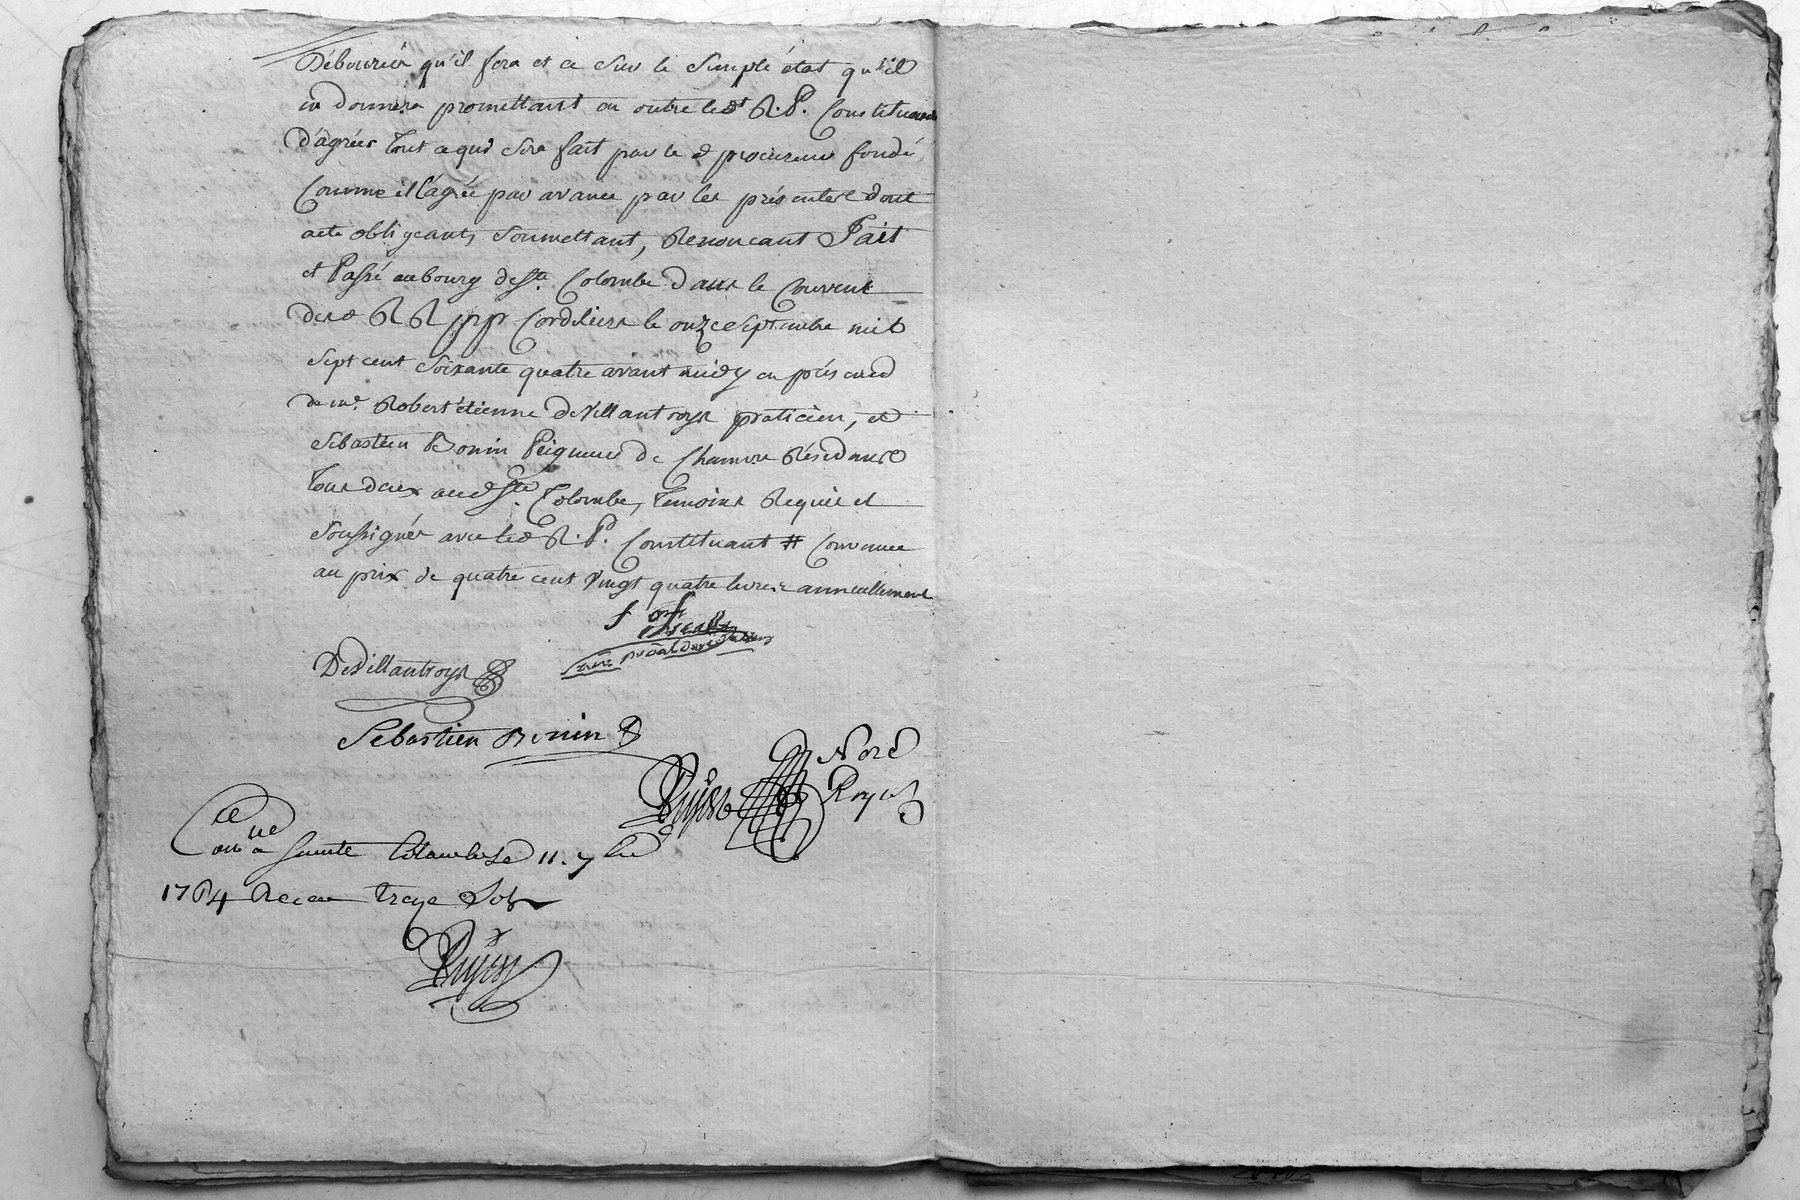 Débourcés qu'il fera et ce sur le simple état qu'il
en donnera promettant en outre led.t R. P. Constituant
d'agréer tout ce qui sera fait par le d procureur fondé
Comme il l'agrée par avance par les présentes dont
acte obligeant, soumettant, Renoncant Fait
et Passé au bourg de Ste. Colombe dans le Couvent
desd R R pp Cordeliers le onze septembre mil
sept cent soixante quatre avant midy en présence
de me. Robert étienne deVillantroys praticien, et
Sébastien Bonin Peigneur de Chanvre Résidants
tous deux aud Ste. Colombe, temoins Requis et
soussignés avec led R. P. Constituant # Convenue
au prix de quatre cent vingt quatre livres annuellement
f
DeVillantroys
Sebastien Bonin
Nore
Royal
Conlle a Sainte Colombe Le 11. 7bre
1764 Recu treze Sols